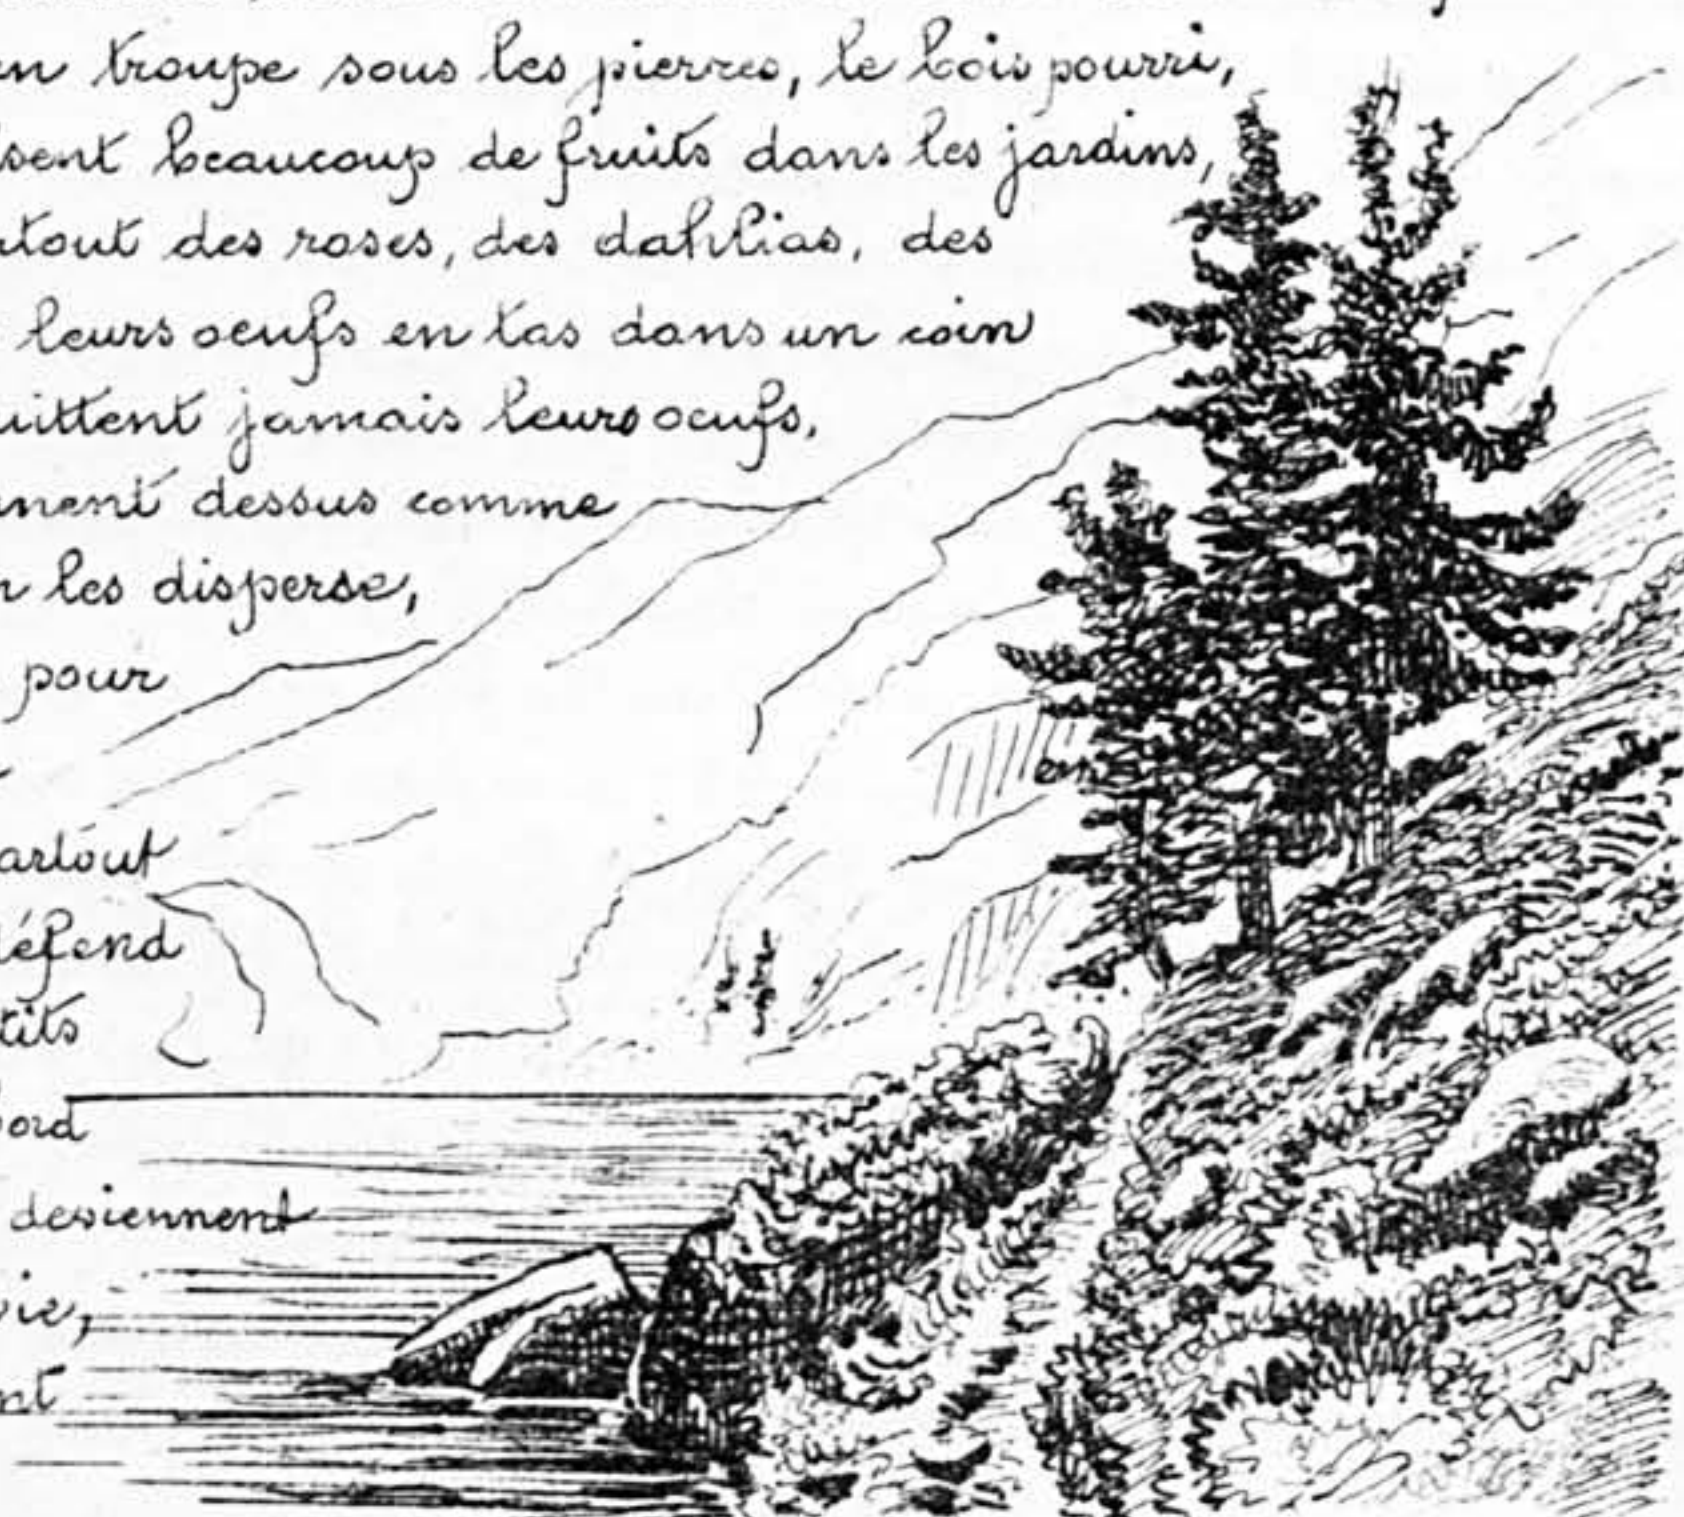 en troupe sous les pierres, le bois pourri,
sent beaucoup de fruits dans les jardins,
tout des roses, des dahlias, des
leurs oeufs en tas dans un coin
uittent jamais leurs oeufs,
nent dessus comme
les disperse,
pour
artout
défend
tits
bord
deviennent
vie,
nt